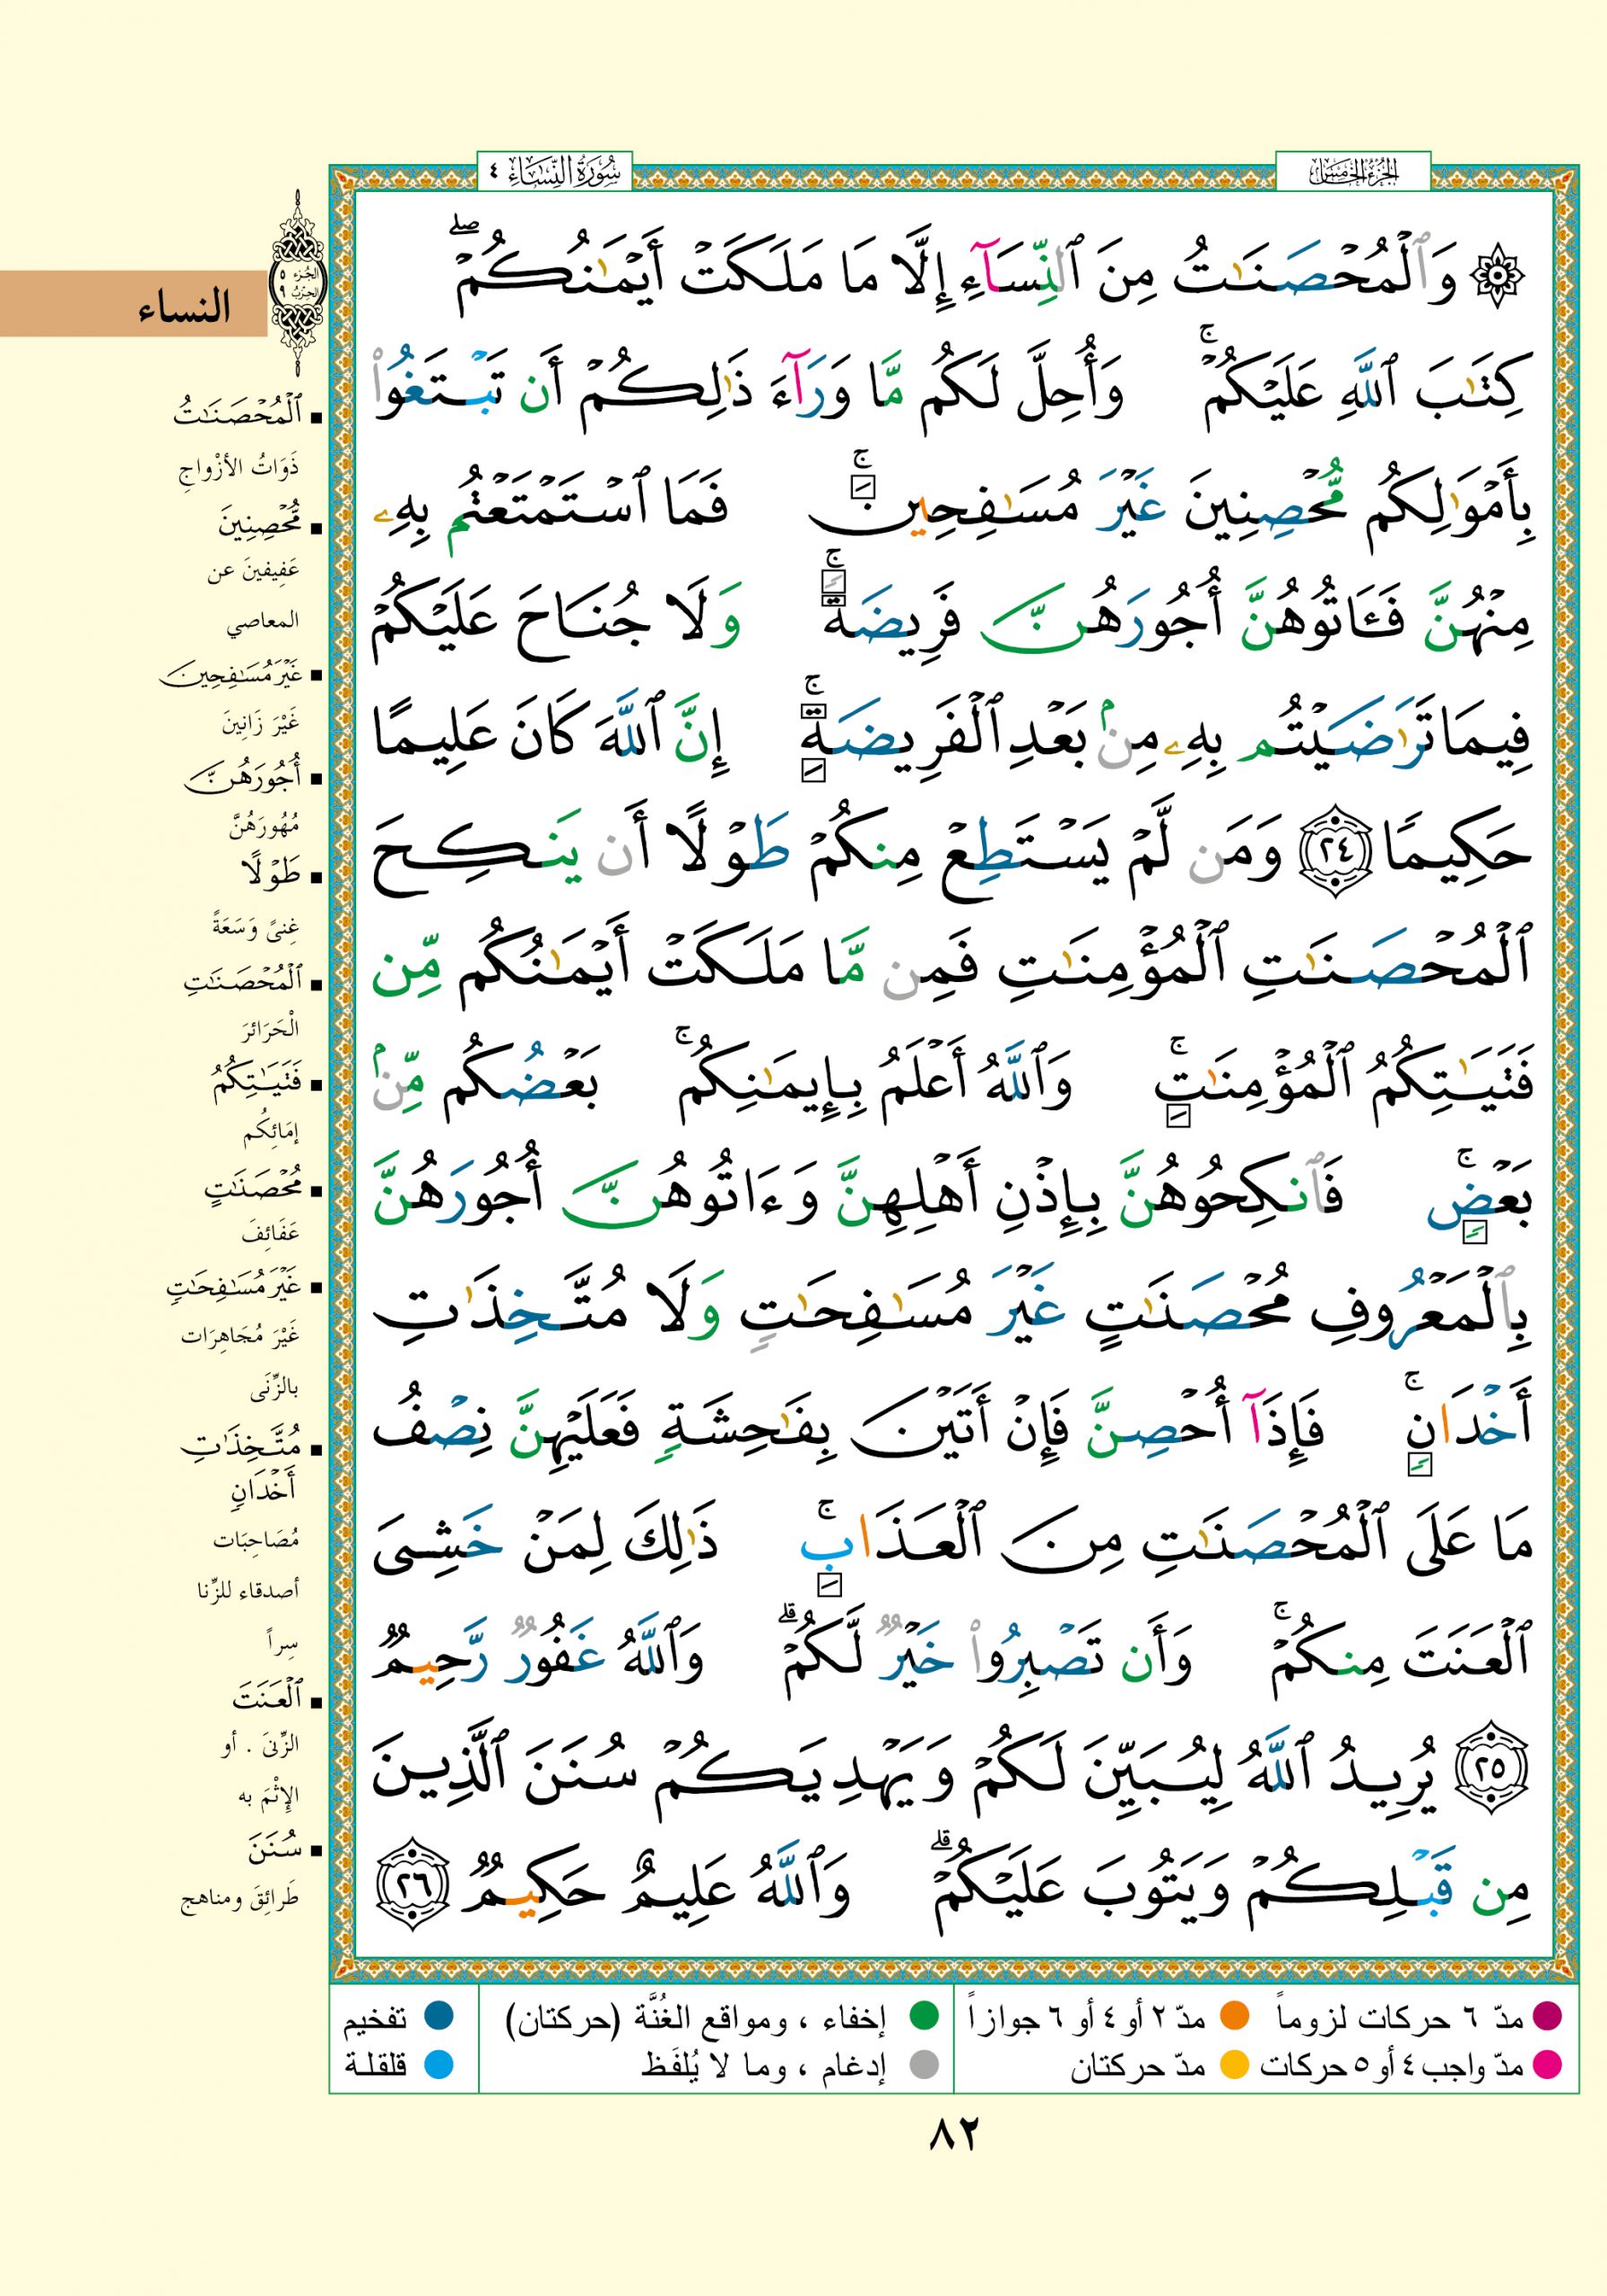 الجزء الخامس
سورة النساء ٤
۞ وَٱلْمُحْصَنَـٰتُ مِنَ ٱلنِّسَآءِ إِلَّا مَا مَلَكَتْ أَيْمَـٰنُكُمْ ۖ
كِتَـٰبَ ٱللَّهِ عَلَيْكُمْ ۚ وَأُحِلَّ لَكُم مَّا وَرَآءَ ذَٰلِكُمْ أَن تَبْتَغُوا۟
بِأَمْوَٰلِكُم مُّحْصِنِينَ غَيْرَ مُسَـٰفِحِينَ ۚ فَمَا ٱسْتَمْتَعْتُم بِهِۦ
مِنْهُنَّ فَـَٔاتُوهُنَّ أُجُورَهُنَّ فَرِيضَةً ۚ وَلَا جُنَاحَ عَلَيْكُمْ
فِيمَا تَرَٰضَيْتُم بِهِۦ مِنۢ بَعْدِ ٱلْفَرِيضَةِ ۚ إِنَّ ٱللَّهَ كَانَ عَلِيمًا
حَكِيمًا ٢٤ وَمَن لَّمْ يَسْتَطِعْ مِنكُمْ طَوْلًا أَن يَنكِحَ
ٱلْمُحْصَنَـٰتِ ٱلْمُؤْمِنَـٰتِ فَمِن مَّا مَلَكَتْ أَيْمَـٰنُكُم مِّن
فَتَيَـٰتِكُمُ ٱلْمُؤْمِنَـٰتِ ۚ وَٱللَّهُ أَعْلَمُ بِإِيمَـٰنِكُم ۚ بَعْضُكُم مِّنۢ
بَعْضٍ ۚ فَٱنكِحُوهُنَّ بِإِذْنِ أَهْلِهِنَّ وَءَاتُوهُنَّ أُجُورَهُنَّ
بِٱلْمَعْرُوفِ مُحْصَنَـٰتٍ غَيْرَ مُسَـٰفِحَـٰتٍ وَلَا مُتَّخِذَٰتِ
أَخْدَانٍ ۚ فَإِذَآ أُحْصِنَّ فَإِنْ أَتَيْنَ بِفَـٰحِشَةٍ فَعَلَيْهِنَّ نِصْفُ
مَا عَلَى ٱلْمُحْصَنَـٰتِ مِنَ ٱلْعَذَابِ ۚ ذَٰلِكَ لِمَنْ خَشِىَ
ٱلْعَنَتَ مِنكُمْ ۚ وَأَن تَصْبِرُوا۟ خَيْرٌ لَّكُمْ ۗ وَٱللَّهُ غَفُورٌ رَّحِيمٌ
٢٥ يُرِيدُ ٱللَّهُ لِيُبَيِّنَ لَكُمْ وَيَهْدِيَكُمْ سُنَنَ ٱلَّذِينَ
مِن قَبْلِكُمْ وَيَتُوبَ عَلَيْكُمْ ۗ وَٱللَّهُ عَلِيمٌ حَكِيمٌ ٢٦
الجزء ٥
الحزب ٩
النساء
▪ ٱلْمُحْصَنَـٰتُ
ذَوَاتُ الأزْواجِ
▪ مُّحْصِنِينَ
عَفِيفِينَ عن
المعاصي
▪ غَيْرَ مُسَـٰفِحِينَ
غَيْرَ زَانِينَ
▪ أُجُورَهُنَّ
مُهُورَهُنَّ
▪ طَوْلًا
غِنىً وَسَعَةً
▪ ٱلْمُحْصَنَـٰتِ
الْحَرَائرَ
▪ فَتَيَـٰتِكُمُ
إمَائِكُم
▪ مُحْصَنَـٰتٍ
عَفَائِفَ
▪ غَيْرَ مُسَـٰفِحَـٰتٍ
غَيْرَ مُجَاهِرَات
بالزِّنَى
▪ مُتَّخِذَٰتِ
أَخْدَانٍ
مُصَاحِبَات
أصدقاء للزِّنا
سِراً
▪ ٱلْعَنَتَ
الزِّنَى . أو
الإِثْمَ به
▪ سُنَنَ
طَرائِقَ ومناهج
مدّ ٦ حركات لزوماً
مدّ ٢ أو ٤ أو ٦ جوازاً
إخفاء ، ومواقع الغُنَّة (حركتان)
تفخيم
مدّ واجب ٤ أو ٥ حركات
مدّ حركتان
إدغام ، وما لا يُلفَظ
قلقلة
٨٢